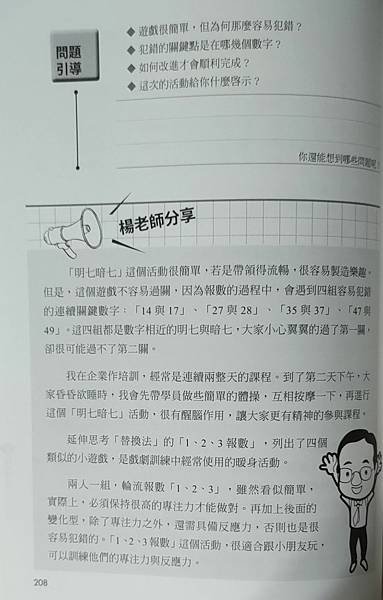 問題
引導
◆ 遊戲很簡單，但為何那麼容易犯錯？
◆ 犯錯的關鍵點是在哪幾個數字？
◆ 如何改進才會順利完成？
◆ 這次的活動給你什麼啓示？
你還能想到哪些問題呢
楊老師分享
「明七暗七」這個活動很簡單，若是帶領得流暢，很容易製造樂趣。
但是，這個遊戲不容易過關，因為報數的過程中，會遇到四組容易犯錯
的連續關鍵數字：「14 與 17」、「27 與 28」、「35 與 37」、「47 與
49」。這四組都是數字相近的明七與暗七，大家小心翼翼的過了第一關，
卻很可能過不了第二關。
我在企業作培訓，經常是連續兩整天的課程。到了第二天下午，大
家昏昏欲睡時，我會先帶學員做些簡單的體操，互相按摩一下，再進行
這個「明七暗七」活動，很有醒腦作用，讓大家更有精神的參與課程。
延伸思考「替換法」的「1、2、3 報數」，列出了四個
類似的小遊戲，是戲劇訓練中經常使用的暖身活動。
兩人一組，輪流報數「1、2、3」，雖然看似簡單，
實際上，必須保持很高的專注力才能做對。再加上後面的
變化型，除了專注力之外，還需具備反應力，否則也是很
容易犯錯的。「1、2、3 報數」這個活動，很適合跟小朋友玩，
可以訓練他們的專注力與反應力。
208